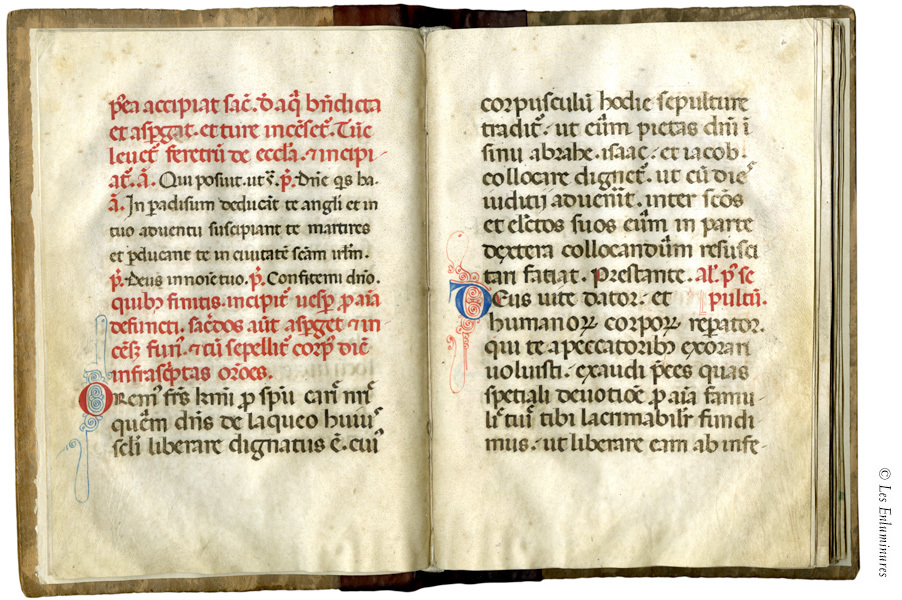 p̄ea accipiat sac̄. d̄ aq̄ bn̄dicta
et asp̱gat. et ture incēset᷑. Tūc
leuet᷑ feretrū de eccl̄a. ⁊ incipi
at᷑. a̅. Qui posuit. ut s̄. p̄. Dn̄e q̄s ha.
a̅. In p̱adisum deducāt te angli et in
tuo aduentu suscipiant te martires
et p̱ducant te in ciuitatē sc̄am irl̄m.
p̄. Deus in noīe tuo. p̄. Confitemi dn̄o.
quib᷒ finitis. incipit᷑ uesp̱. p̱ aīa
defuncti. sac̄dos aūt asp̱get ⁊ in
cēs᷑ fun᷑. ⁊ cū sepellit᷑ corp᷒ dic̄
infrasc̄ptas or̄oes.
Orem᷒ fr̄s kmī p̱ sp̄u cari nr̄i
quem dn̄s de laqueo huiu᷒
scl̄i liberare dignatus ē. cui᷒
corpusculū hodie sepulture
tradit᷑. ut eūm pietas dn̄i ī
sinu abrahe. isaac. et iacob.
collocare dignet᷑. ut cū die᷒
iuditii aduen̄it. inter sc̄os
et electos suos eūm in parte
dextera collocandūm resusci
tari fatiat. Prestante. al᷑ p᷒ se
Deus uite dator. et pultū.
humanoꝝ corpoꝝ rep̱ator.
qui te a peccatorib᷒ exorari
uoluisti. exaudi p̄ces quas
speciali deuotiōe p̱ aīa famu
li tui᷒ tibi lacrimabilr̄ fundi
mus. ut liberare eam ab infe
© Les Enluminures